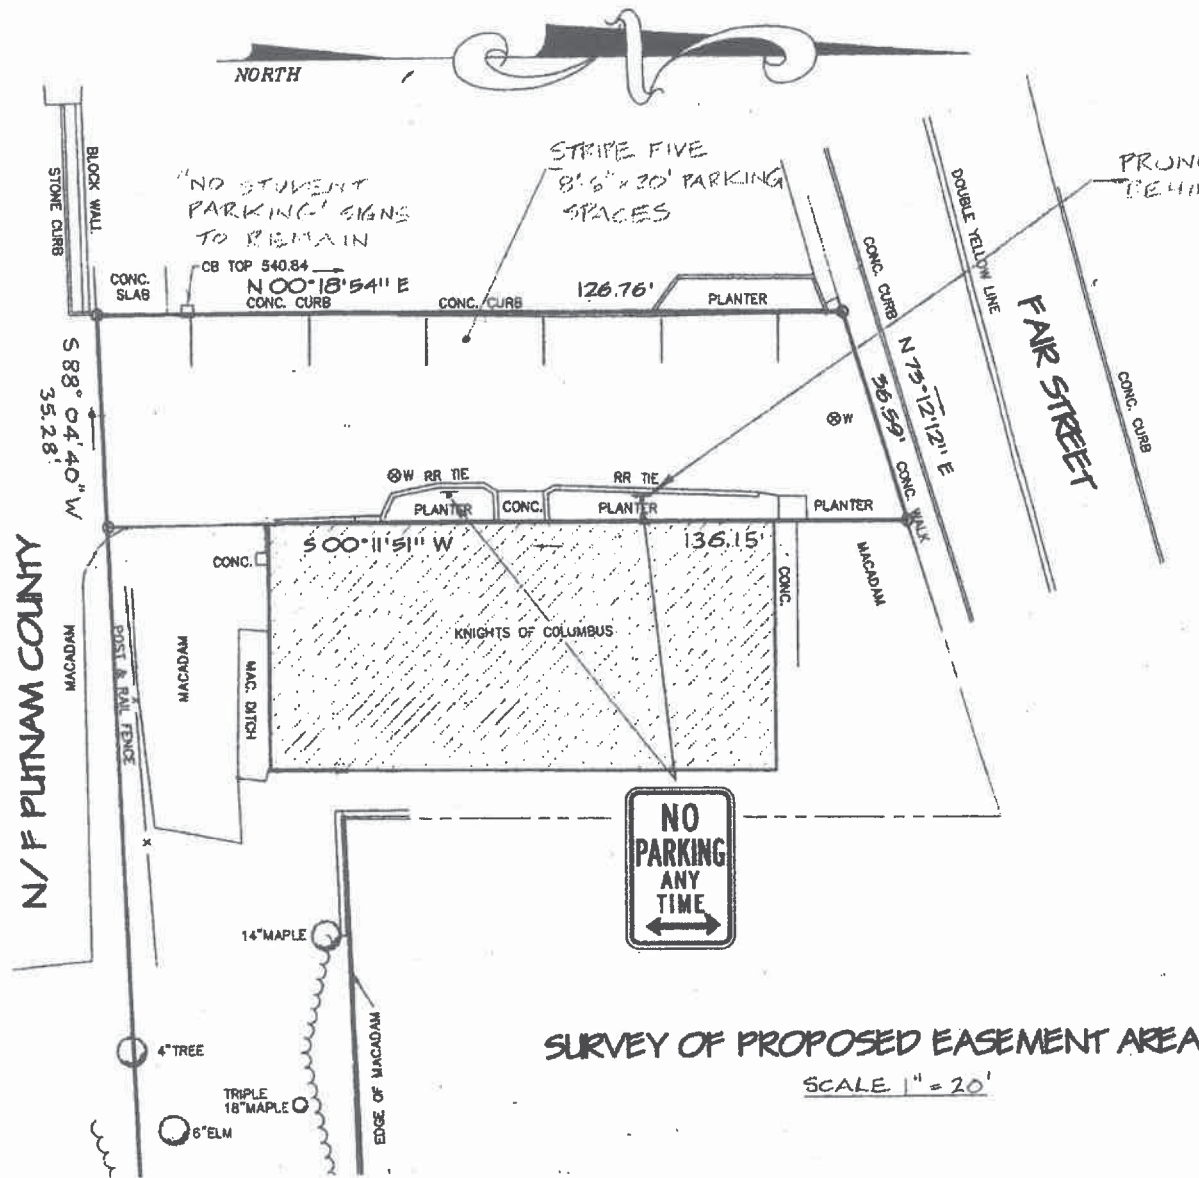 NORTH
"NO STUDENT
PARKING" SIGNS
TO REMAIN
STRIPE FIVE
8'6" x 20' PARKING
SPACES
BLOCK WALL
STONE CURB
CONC.
SLAB
CB TOP 540.84
N 00°18'54" E
CONC. CURB
CONC. CURB
126.76'
PLANTER
CONC. CURB
DOUBLE YELLOW LINE
FAIR STREET
CONC. CURB
N 73°12'12" E
36.59'
CONC. WALK
S 88° 04' 40" W
35.28'
W
W RR TIE
RR TIE
PLANTER
CONC.
PLANTER
PLANTER
S 00°11'51" W
136.15'
CONC.
CONC.
MACADAM
KNIGHTS OF COLUMBUS
N/F PUTNAM COUNTY
MACADAM
POST & RAIL FENCE
MACADAM
MAC. DITCH
NO
PARKING
ANY
TIME
14"MAPLE
4"TREE
TRIPLE
18"MAPLE
6"ELM
EDGE OF MACADAM
SURVEY OF PROPOSED EASEMENT AREA
SCALE 1" = 20'